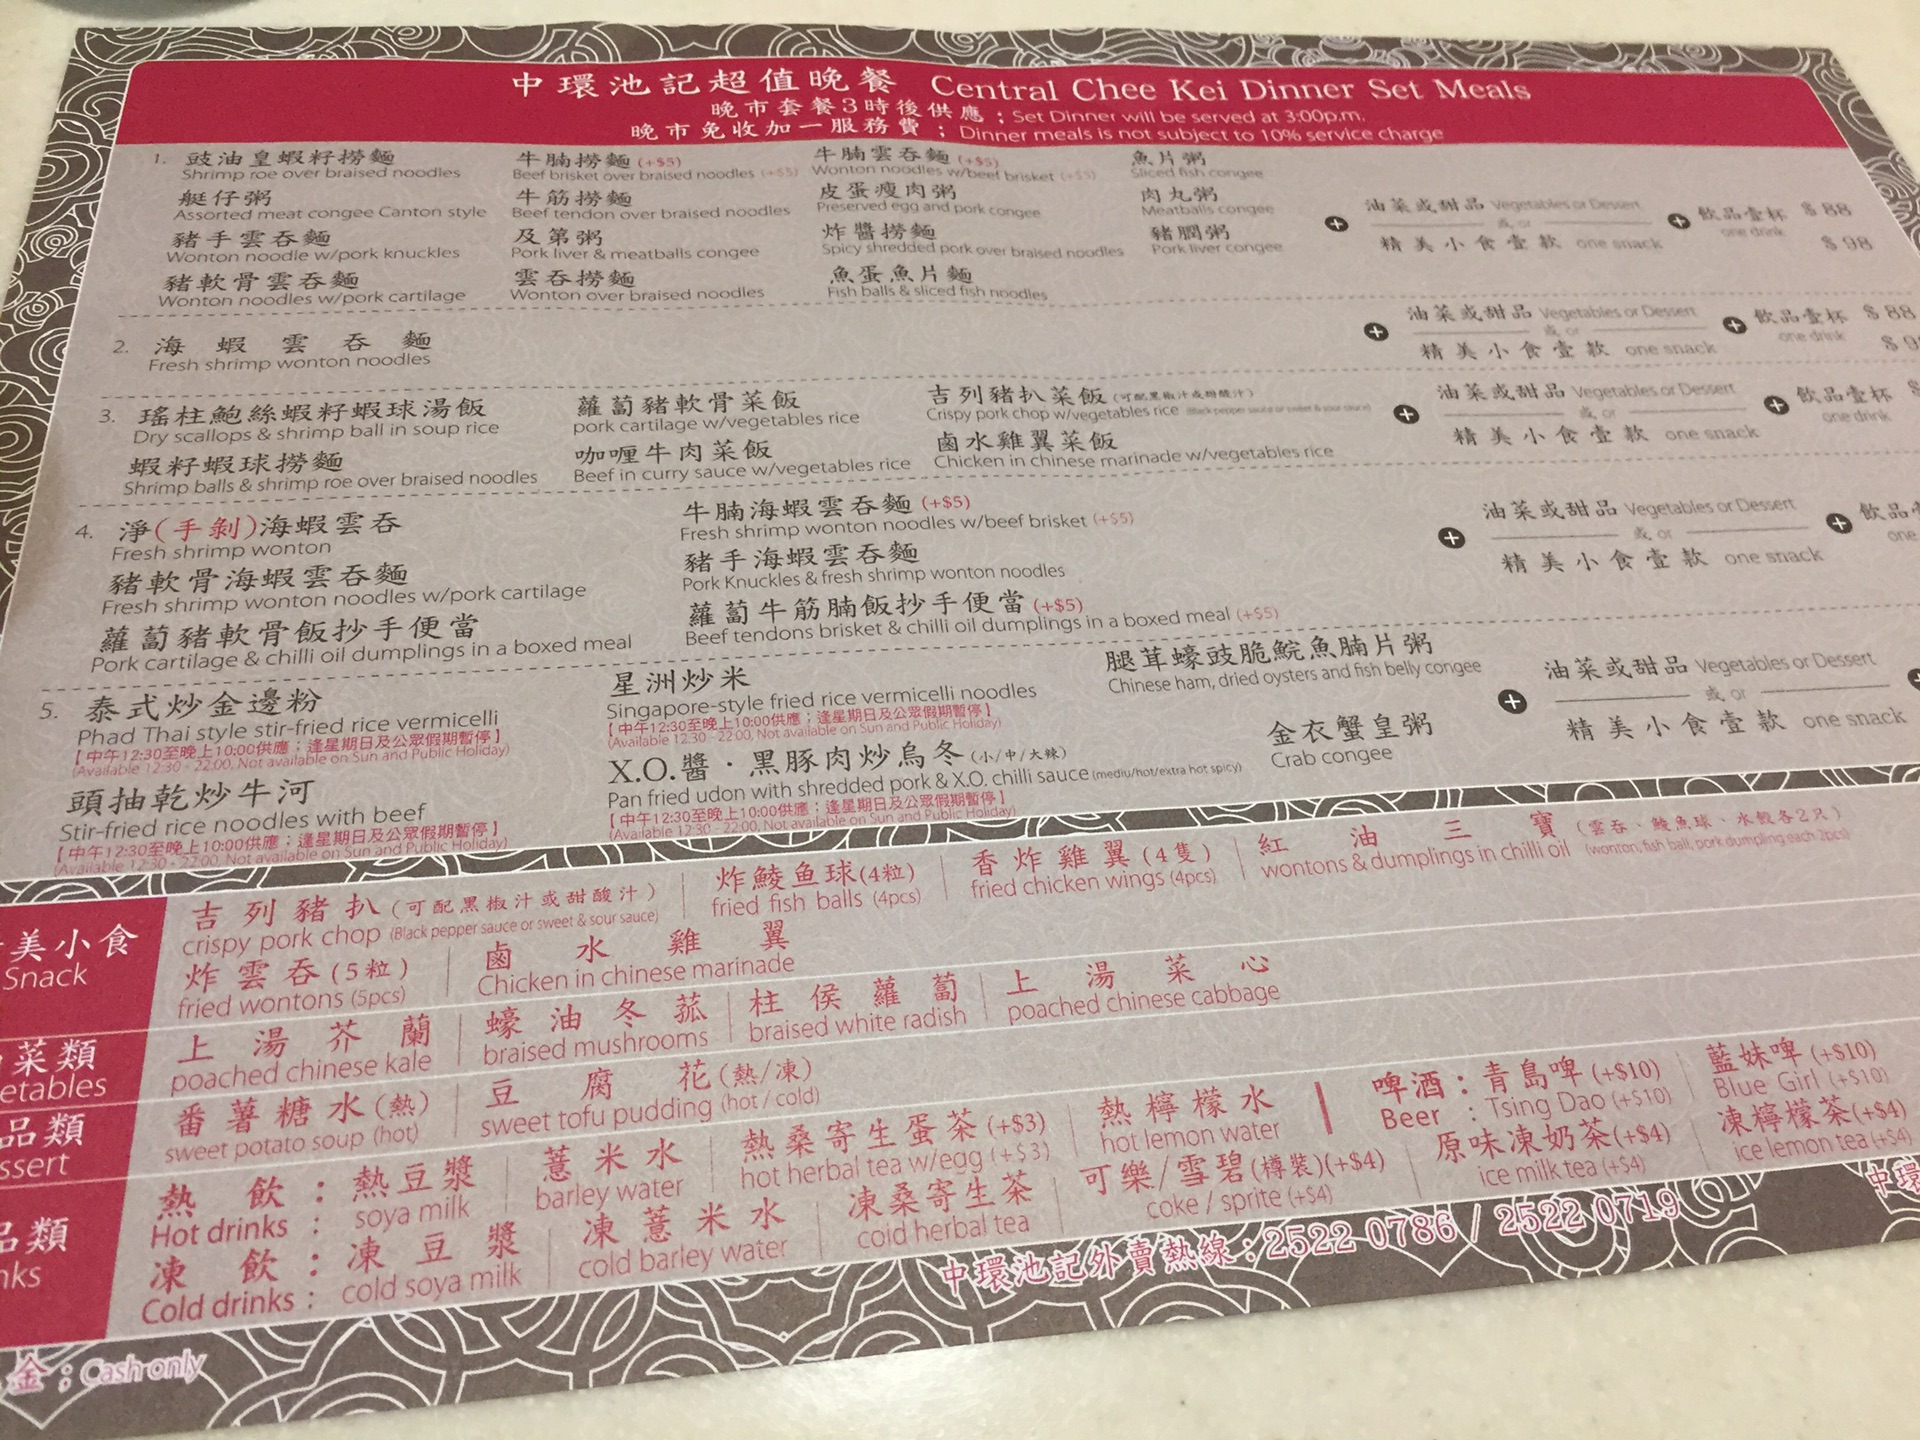 中環池記超值晚餐 Central Chee Kei Dinner Set Meals
晚市套餐3時後供應；Set Dinner will be served at 3:00p.m.
晚市免收加一服務費；Dinner meals is not subject to 10% service charge
1. 豉油皇蝦籽撈麵 牛腩撈麵 (+$5) 牛腩雲吞麵 (+$5) 魚片粥
Shrimp roe over braised noodles Beef brisket over braised noodles (+$5) Wonton noodles w/beef brisket (+$5) Sliced fish congee
艇仔粥 牛筋撈麵 皮蛋瘦肉粥 肉丸粥
Assorted meat congee Canton style Beef tendon over braised noodles Preserved egg and pork congee Meatballs congee
豬手雲吞麵 及第粥 炸醬撈麵 豬膶粥
Wonton noodle w/pork knuckles Pork liver & meatballs congee Spicy shredded pork over braised noodles Pork liver congee
豬軟骨雲吞麵 雲吞撈麵 魚蛋魚片麵
Wonton noodles w/pork cartilage Wonton over braised noodles Fish balls & sliced fish noodles
+ 油菜或甜品 Vegetables or Dessert + 飲品壹杯 $88
或 or one drink
精美小食壹款 one snack $98
2. 海蝦雲吞麵
Fresh shrimp wonton noodles
+ 油菜或甜品 Vegetables or Dessert + 飲品壹杯 $88
或 or one drink
精美小食壹款 one snack $9
3. 瑤柱鮑絲蝦籽蝦球湯飯 蘿蔔豬軟骨菜飯 吉列豬扒菜飯 (可配黑椒汁或甜酸汁)
Dry scallops & shrimp ball in soup rice pork cartilage w/vegetables rice Crispy pork chop w/vegetables rice (Black pepper sauce or sweet & sour sauce)
蝦籽蝦球撈麵 咖喱牛肉菜飯 鹵水雞翼菜飯
Shrimp balls & shrimp roe over braised noodles Beef in curry sauce w/vegetables rice Chicken in chinese marinade w/vegetables rice
+ 油菜或甜品 Vegetables or Dessert + 飲品壹杯 $
或 or one drink
精美小食壹款 one snack
4. 淨(手剝)海蝦雲吞 牛腩海蝦雲吞麵 (+$5)
Fresh shrimp wonton Fresh shrimp wonton noodles w/beef brisket (+$5)
豬軟骨海蝦雲吞麵 豬手海蝦雲吞麵
Fresh shrimp wonton noodles w/pork cartilage Pork Knuckles & fresh shrimp wonton noodles
蘿蔔豬軟骨飯抄手便當 蘿蔔牛筋腩飯抄手便當 (+$5)
Pork cartilage & chilli oil dumplings in a boxed meal Beef tendons brisket & chilli oil dumplings in a boxed meal (+$5)
+ 油菜或甜品 Vegetables or Dessert + 飲品
或 or one
精美小食壹款 one snack
5. 泰式炒金邊粉 星洲炒米 腿茸蠔豉脆鯇魚腩片粥
Phad Thai style stir-fried rice vermicelli Singapore-style fried rice vermicelli noodles Chinese ham, dried oysters and fish belly congee
【中午12:30至晚上10:00供應；逢星期日及公眾假期暫停】 【中午12:30至晚上10:00供應；逢星期日及公眾假期暫停】
(Available 12:30 - 22:00, Not available on Sun and Public Holiday) (Available 12:30 - 22:00, Not available on Sun and Public Holiday)
頭抽乾炒牛河 X.O.醬·黑豚肉炒烏冬 (小/中/大辣) 金衣蟹皇粥
Stir-fried rice noodles with beef Pan fried udon with shredded pork & X.O. chilli sauce (mediu/hot/extra hot spicy) Crab congee
【中午12:30至晚上10:00供應；逢星期日及公眾假期暫停】 【中午12:30至晚上10:00供應；逢星期日及公眾假期暫停】
(Available 12:30 - 22:00, Not available on Sun and Public Holiday) (Available 12:30 - 22:00, Not available on Sun and Public Holiday)
+ 油菜或甜品 Vegetables or Dessert +
或 or
精美小食壹款 one snack
美小食
Snack
吉列豬扒 (可配黑椒汁或甜酸汁) 炸鯪魚球(4粒) 香炸雞翼 (4隻) 紅油三寶 (雲吞、鯪魚球、水餃各2只)
crispy pork chop (Black pepper sauce or sweet & sour sauce) fried fish balls (4pcs) fried chicken wings (4pcs) wontons & dumplings in chilli oil (wonton, fish ball, pork dumpling each 2pcs)
炸雲吞 (5粒) 鹵水雞翼
fried wontons (5pcs) Chicken in chinese marinade
菜類
etables
上湯芥蘭 蠔油冬菰 柱侯蘿蔔 上湯菜心
poached chinese kale braised mushrooms braised white radish poached chinese cabbage
品類
ssert
番薯糖水 (熱) 豆腐花 (熱/凍)
sweet potato soup (hot) sweet tofu pudding (hot / cold)
品類
nks
熱飲：熱豆漿 薏米水 熱桑寄生蛋茶 (+$3) 熱檸檬水 啤酒：青島啤 (+$10) 藍妹啤 (+$10)
Hot drinks : soya milk barley water hot herbal tea w/egg (+$3) hot lemon water Beer : Tsing Dao (+$10) Blue Girl (+$10)
凍飲：凍豆漿 凍薏米水 凍桑寄生茶 可樂/雪碧 (樽裝)(+$4) 原味凍奶茶(+$4) 凍檸檬茶(+$4)
Cold drinks : cold soya milk cold barley water cold herbal tea coke / sprite (+$4) ice milk tea (+$4) ice lemon tea (+$4)
中環池記外賣熱線：2522 0786 / 2522 0719
中環
金；Cash only